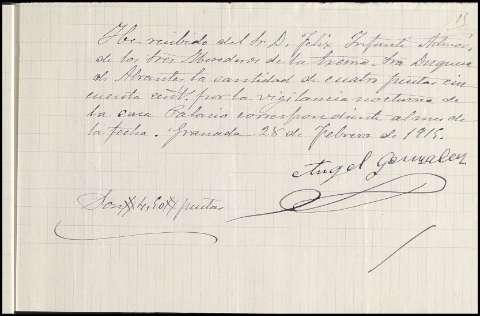 15
He recibido del Sr. D. Felix Infante
de los tres Herederos de la Excma. Sra Duquesa
de Abrantes la cantidad de cuatro pesetas cin
cuenta cent. por la vigilancia nocturna de
la casa Palacio correspondiente al mes de
la fecha. Granada 28 de Febrero de 1915.
Angel Gonzalez
Son 4,50 pesetas